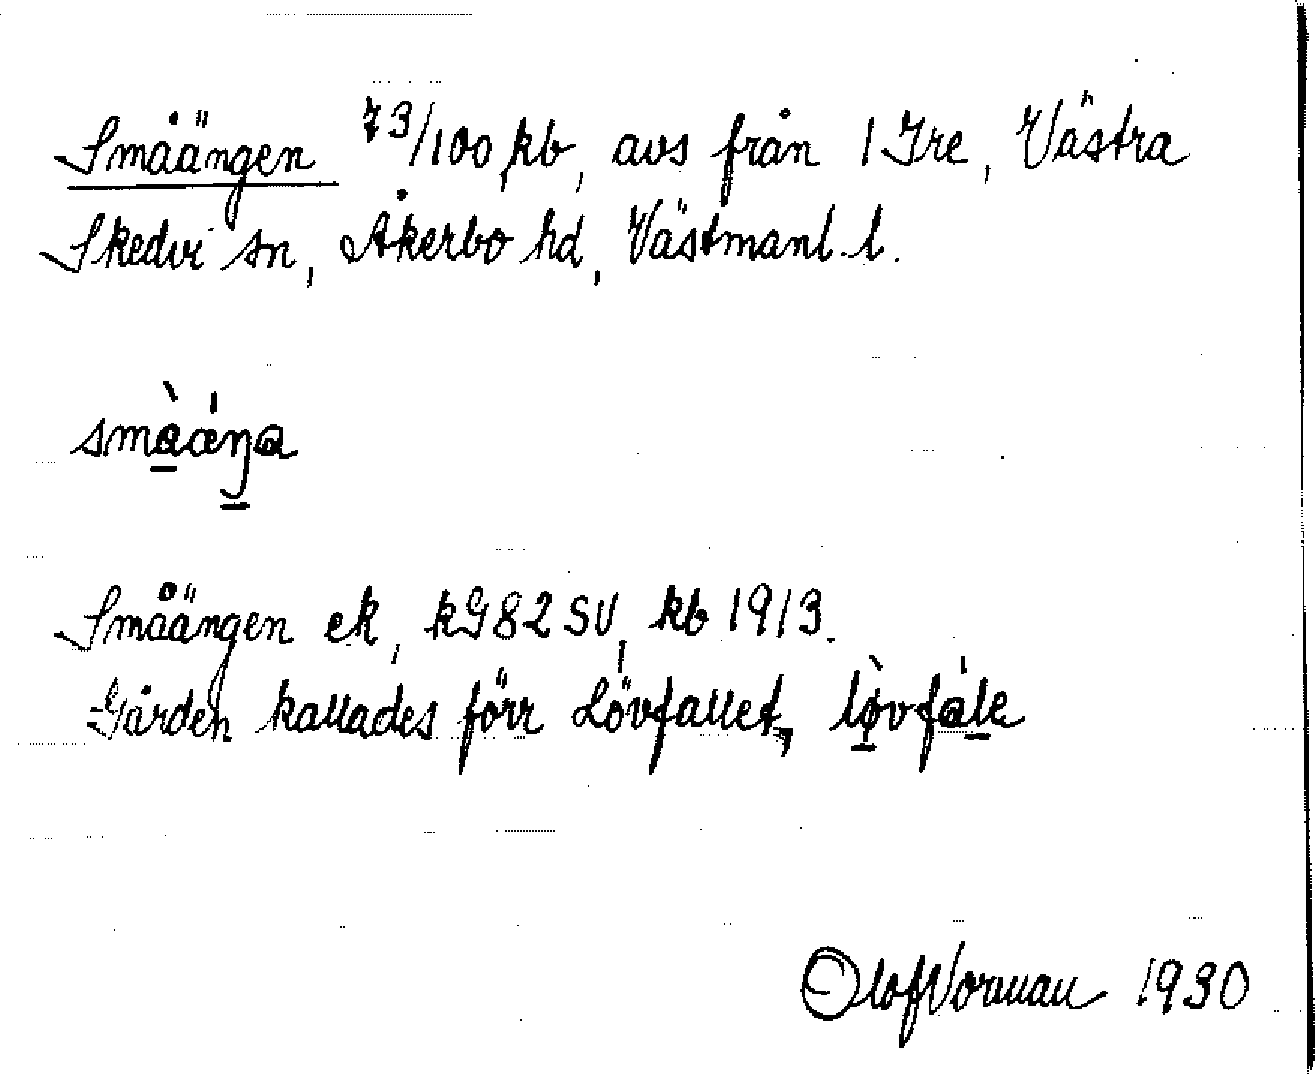 Småängen 73/100 kb, avs från 1 Gre, Västra
Skedvi sn, Åkerbo hd, Västmanl. l.
småäŋa
Småängen ek, kG82SV, kb 1913.
Gården kallades förr Lövfallet, lø̀vfále
Olof Norman 1930